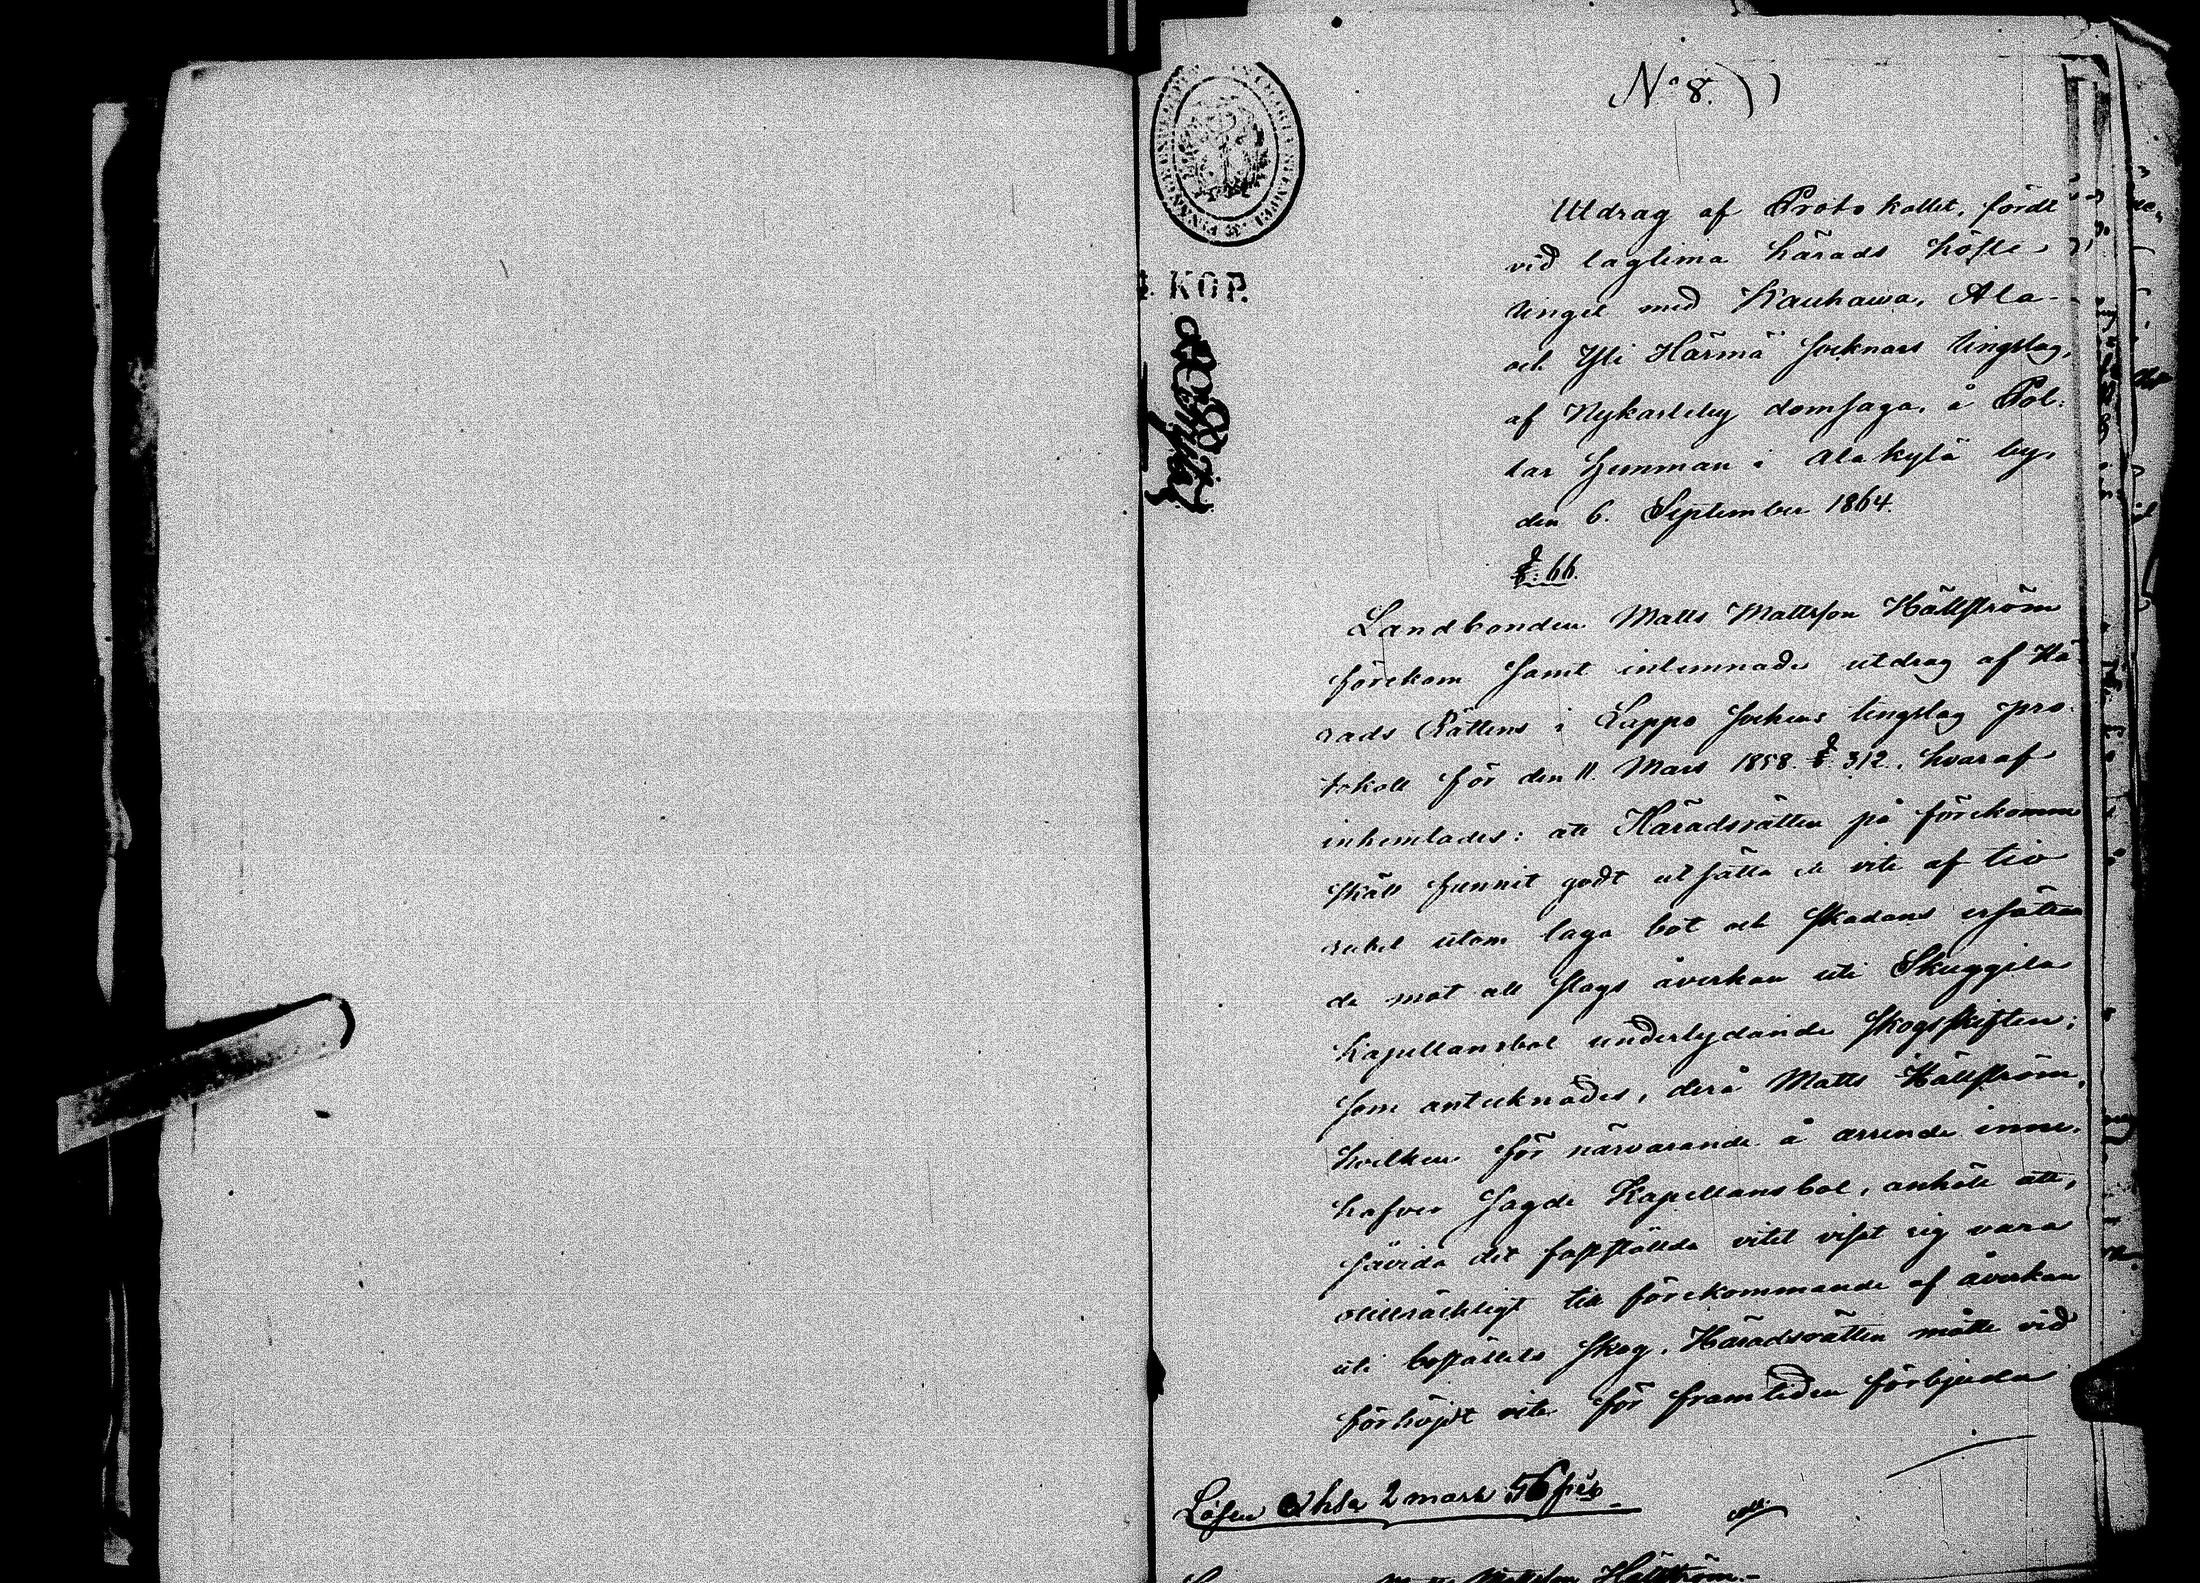 No 8.
KOP.
Utdrag af Protokollet, fördt
vid lagtima Härads Höste
tinget med Kauhawa, Ala-
och Yli Härmä Socknars tingslag,
af Nykarleby domsaga, å Pol-
lar hemman i Alakylä by,
den 6. September 1864.
§. 66.
Landbonden Matts Mattsson Hällström
förekom samt inlemnade utdrag af Hä-
rads Rättens i Lappo Sockens tingslag pro-
tokoll för den 11. Mars 1858. §. 312, hvaraf
inhemtades: att Häradsrätten på förekomne
skäll funnit godt utsätta ett vite af tio
rubel utom laga bot och skadans ersättan
de mot all slags åverkan uti Skuggila
Kapellansbol underlydande skogsskiften;
som antecknades, derå Matts Hällström,
hvilken för närvarande å arrende inne-
hafver sagde Kapellansbol, anhöll att,
såvida det fastställda vitet visat sig vara
otillräckligt till förekommande af åverkan
uti boställets skog, Häradsrätten måtte vid
förhöjdt vite för framtiden förbjuda
Lösen 2 mark 56 pi
Mattsson Hällström.-